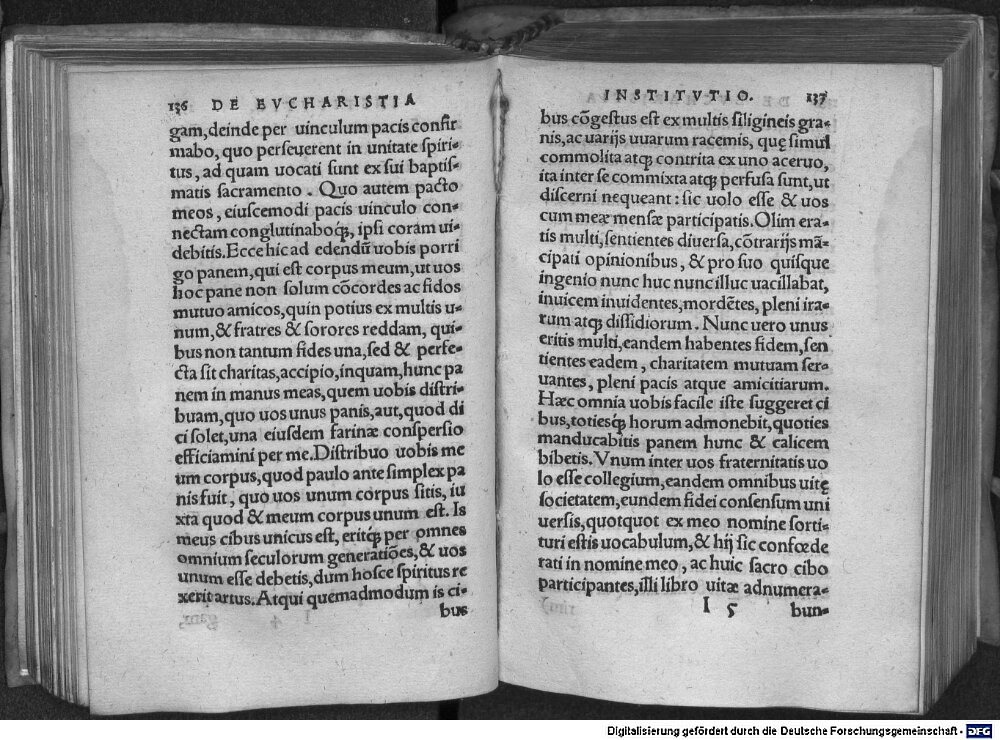 136 DE EVCHARISTIA
gam,deinde per uinculum pacis confir
mabo, quo perseuerent in unitate spiri-
tus, ad quam uocati sunt ex sui baptis-
matis sacramento. Quo autem pacto
meos, eiuscemodi pacis uinculo con-
nectam conglutinaboq́;, ipsi coram ui-
debitis.Ecce hic ad edendū uobis porri
go panem,qui est corpus meum,ut uos
hoc pane non solum cōcordes ac fidos
mutuo amicos,quin potius ex multis u-
num,& fratres & sorores reddam, qui-
bus non tantum fides una,sed & perfe-
cta sit charitas,accipio,inquam,hunc pa
nem in manus meas,quem uobis distri-
buam,quo uos unus panis,aut,quod di
ci solet,una eiusdem farinæ conspersio
efficiamini per me.Distribuo uobis me
um corpus,quod paulo ante simplex pa
nis fuit, quo uos unum corpus sitis, iu
xta quod & meum corpus unum est. Is
meus cibus unicus est, eritq́; per omnes
omnium seculorum generatiōes,& uos
unum esse debetis,dum hosce spiritus re
xerit artus.Atqui quemadmodum is ci-
bus
INSTITVTIO. 137
bus cōgestus est ex multis siligineis gra-
nis,ac uarijs uuarum racemis, quę simul
commolita atq; contrita ex uno aceruo,
ita inter se commixta atq; perfusa sunt,ut
discerni nequeant: sic uolo esse & uos
cum meæ mensæ participatis.Olim era-
tis multi,sentientes diuersa,cōtrarijs mā-
cipati opinionibus, & pro suo quisque
ingenio nunc huc nunc illuc uacillabat,
inuicem inuidentes,mordētes, pleni ira-
rum atq; dissidiorum. Nunc uero unus
eritis multi,eandem habentes fidem,sen
tientes eadem, charitatem mutuam ser-
uantes, pleni pacis atque amicitiarum.
Hæc omnia uobis facile iste suggeret ci
bus,totiesq́; horum admonebit,quoties
manducabitis panem hunc & calicem
bibetis.Vnum inter uos fraternitatis uo
lo esse collegium,eandem omnibus uitę
societatem,eundem fidei consensum uni
uersis,quotquot ex meo nomine sorti-
turi estis uocabulum,& hij sic confœde
rati in nomine meo, ac huic sacro cibo
participantes,illi libro uitæ adnumera-
I 5 bun-
Digitalisierung gefördert durch die Deutsche Forschungsgemeinschaft - DFG